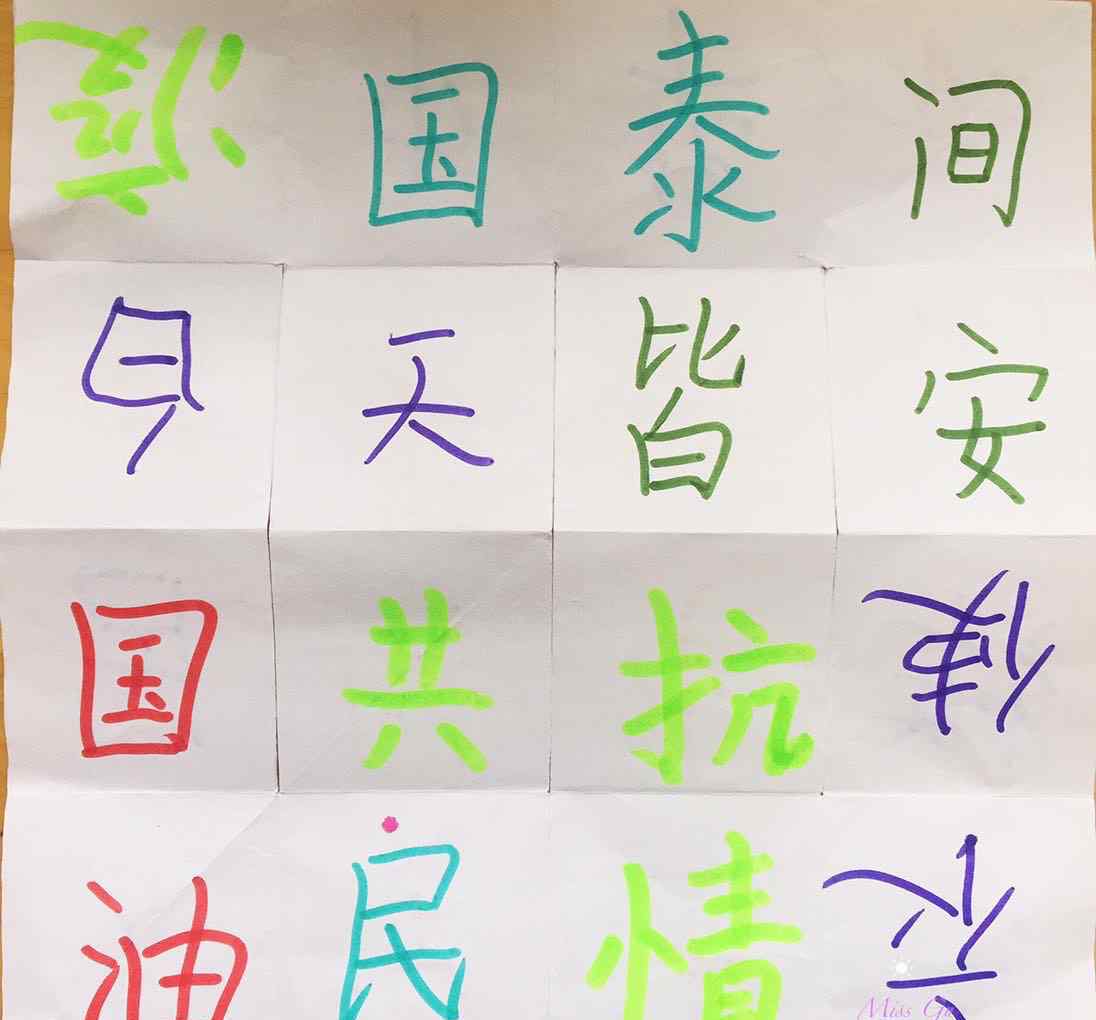 疫 国 泰 间
白 天 皆 安
国 共 抗 使
油 民 情 衣
Miss Gu